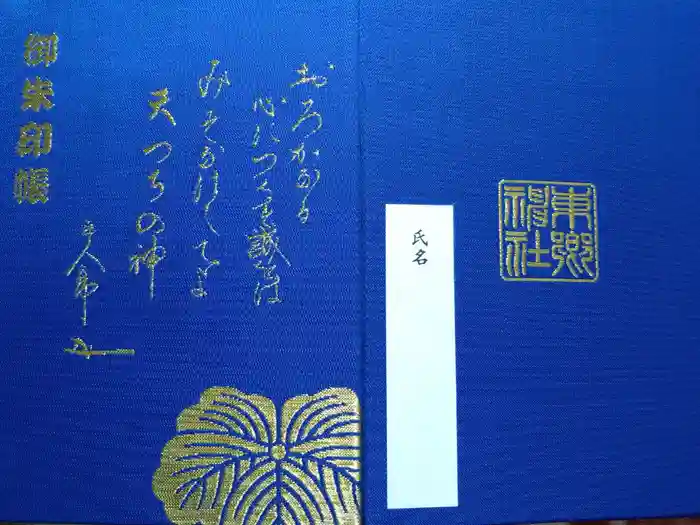 東郷
神社
氏名
おろかなる
心につくす誠をは
みそなはしてよ
天つちの神
平八郎
御朱印帳